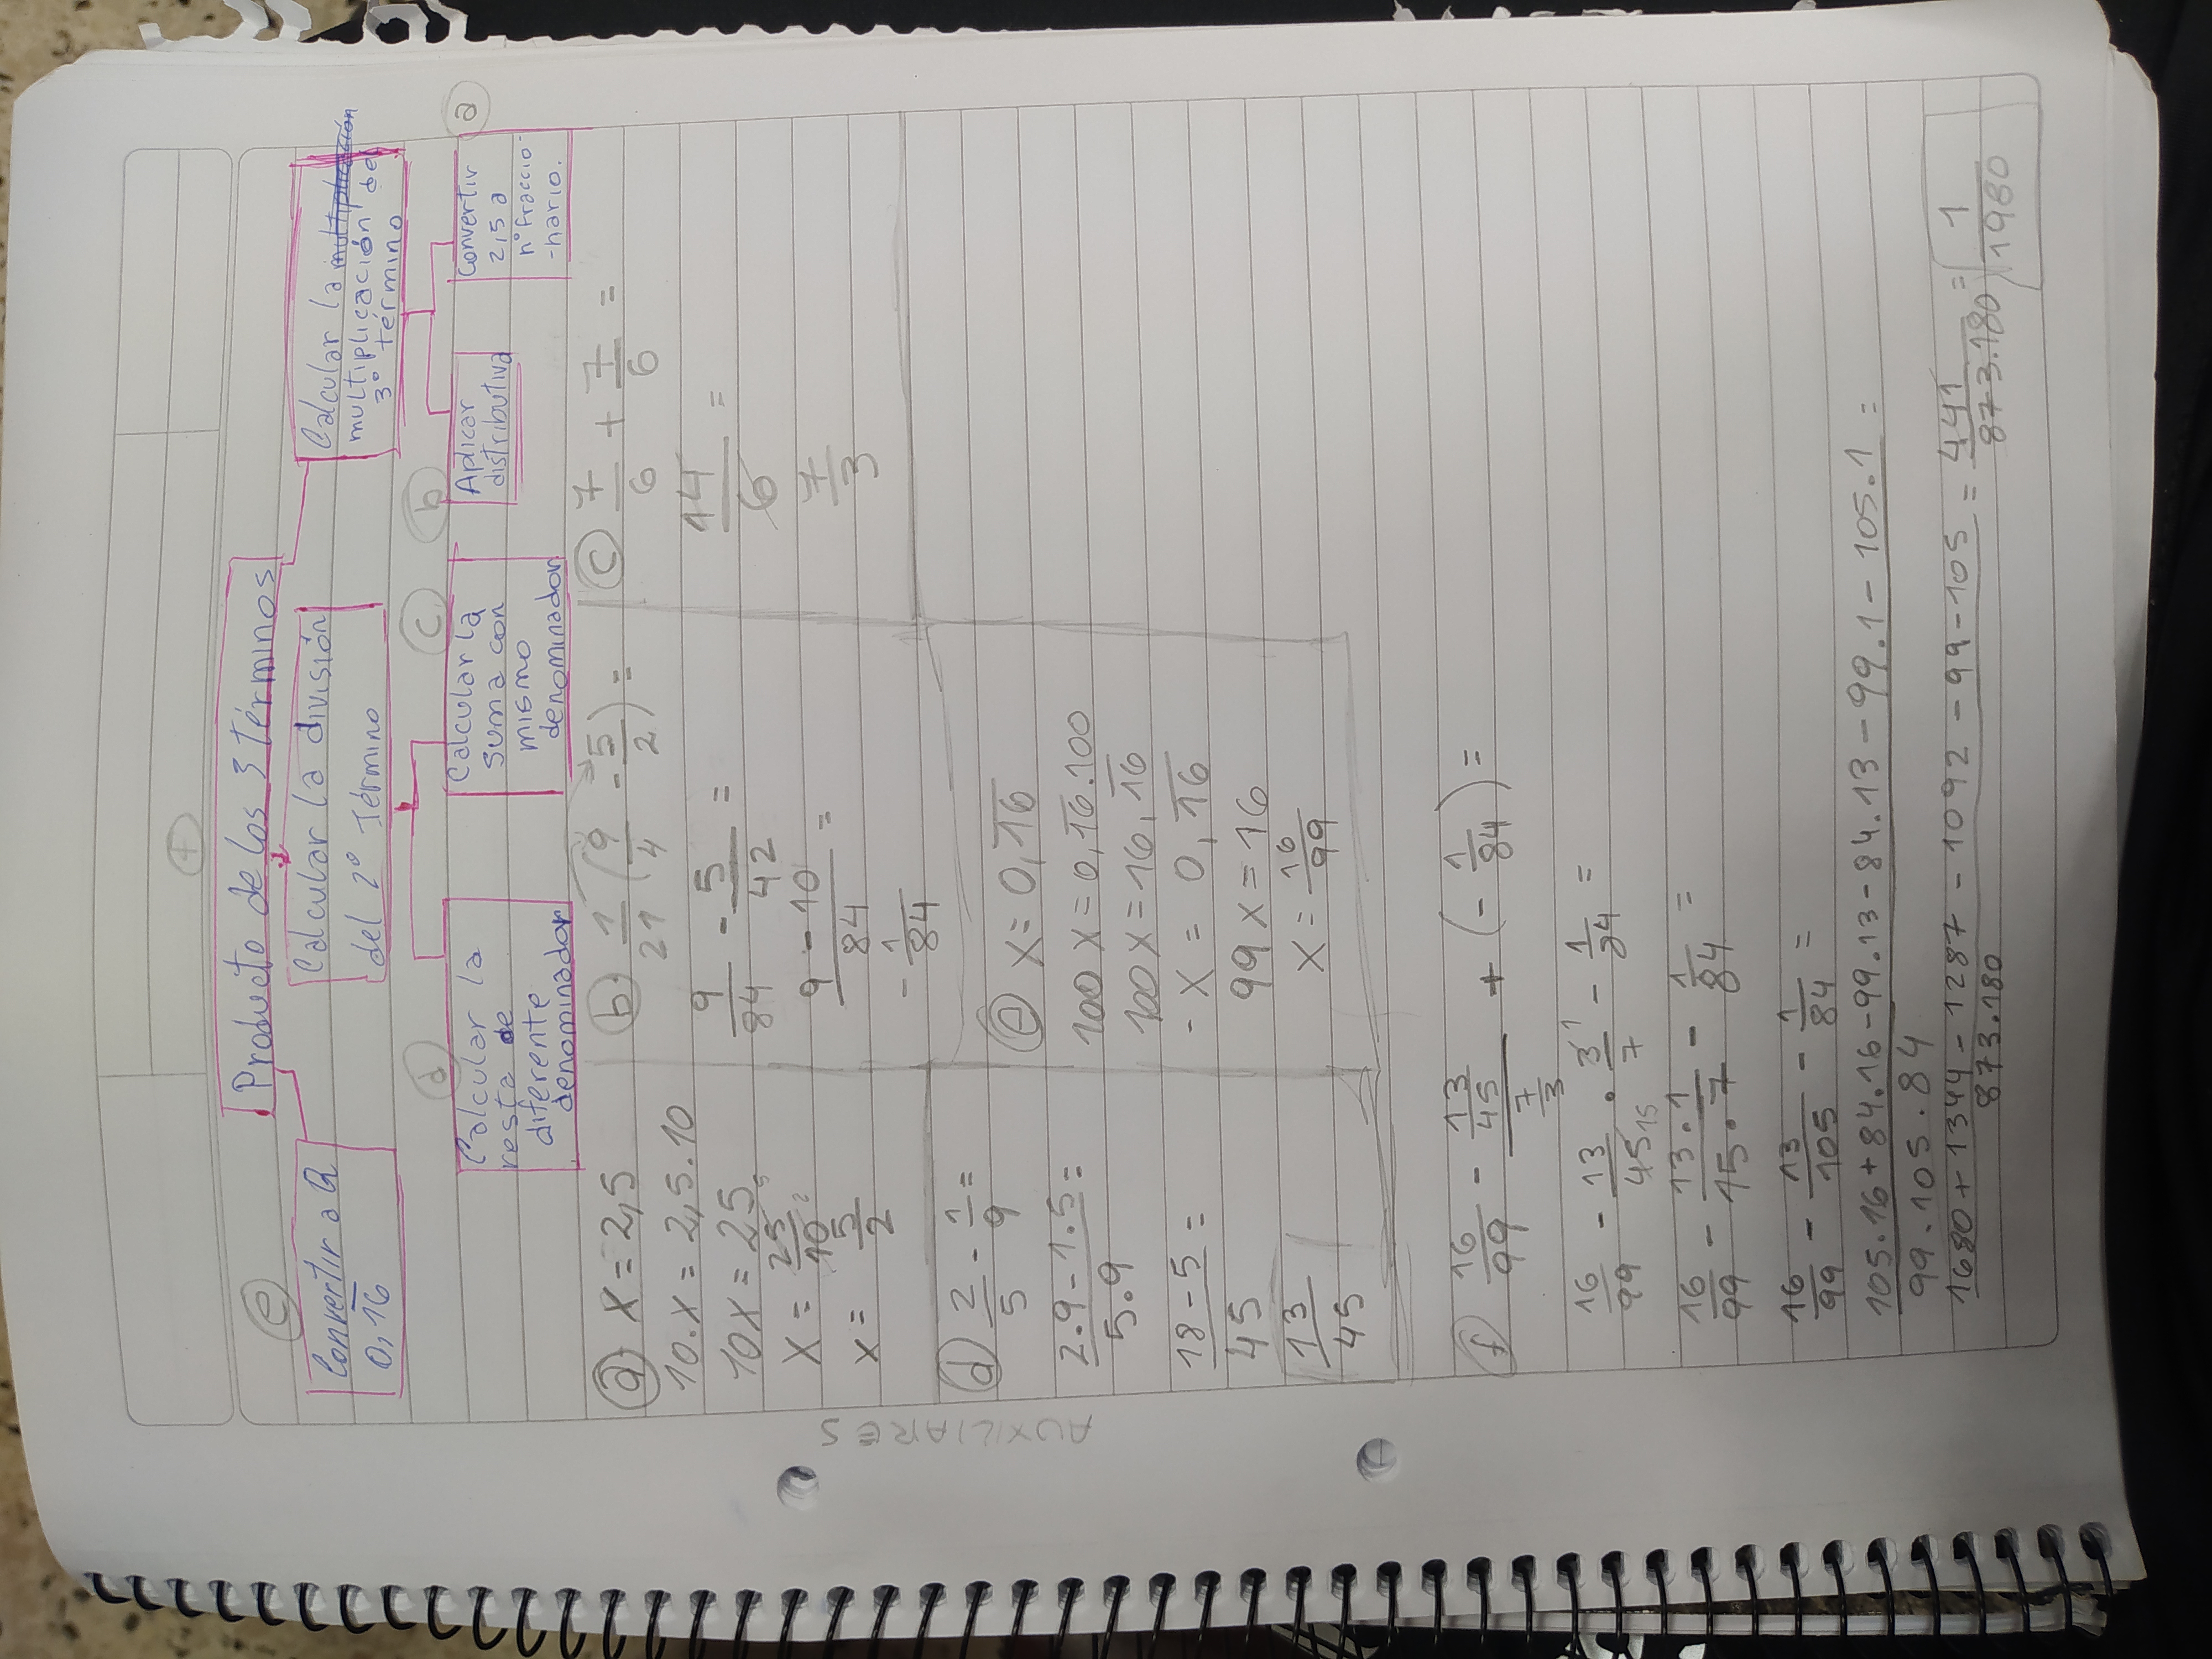 f
Producto de los 3 términos
e
Convertir a Q
0,16
Calcular la división
del 2º Término
Calcular la multiplicación
multiplicación del
3º término
d
c
b
a
Calcular la
resta de
diferente
denominador
Calcular la
suma con
mismo
denominador
Aplicar
distributiva
Convertir
2,5 a
nº fraccio-
-nario.
AUXILIARES
a) x = 2,5
10.x = 2,5.10
10x = 25
x = 25/10
x = 5/2
b) 1/21 (9/4 - 5/2) =
9/84 - 5/42 =
9 - 10/84 =
- 1/84
c) 7/6 + 7/6 =
14/6 =
7/3
d) 2/5 - 1/9 =
2.9 - 1.5/5.9 =
18 - 5/45 =
13/45
e) x = 0,16
100 x = 0,16.100
100 x = 16,16
- x = 0,16
99 x = 16
x = 16/99
f) 16/99 - 13/45 / 7/3 + (- 1/84) =
16/99 - 13/45 15 . 3 1/7 - 1/84 =
16/99 - 13.1/15.7 - 1/84 =
16/99 - 13/105 - 1/84 =
105.16 + 84.16 - 99.13 - 84.13 - 99.1 - 105.1 =
99.105.84
1680 + 1344 - 1287 - 1092 - 99 - 105 = 441/873.180 = 1/1980
873.180